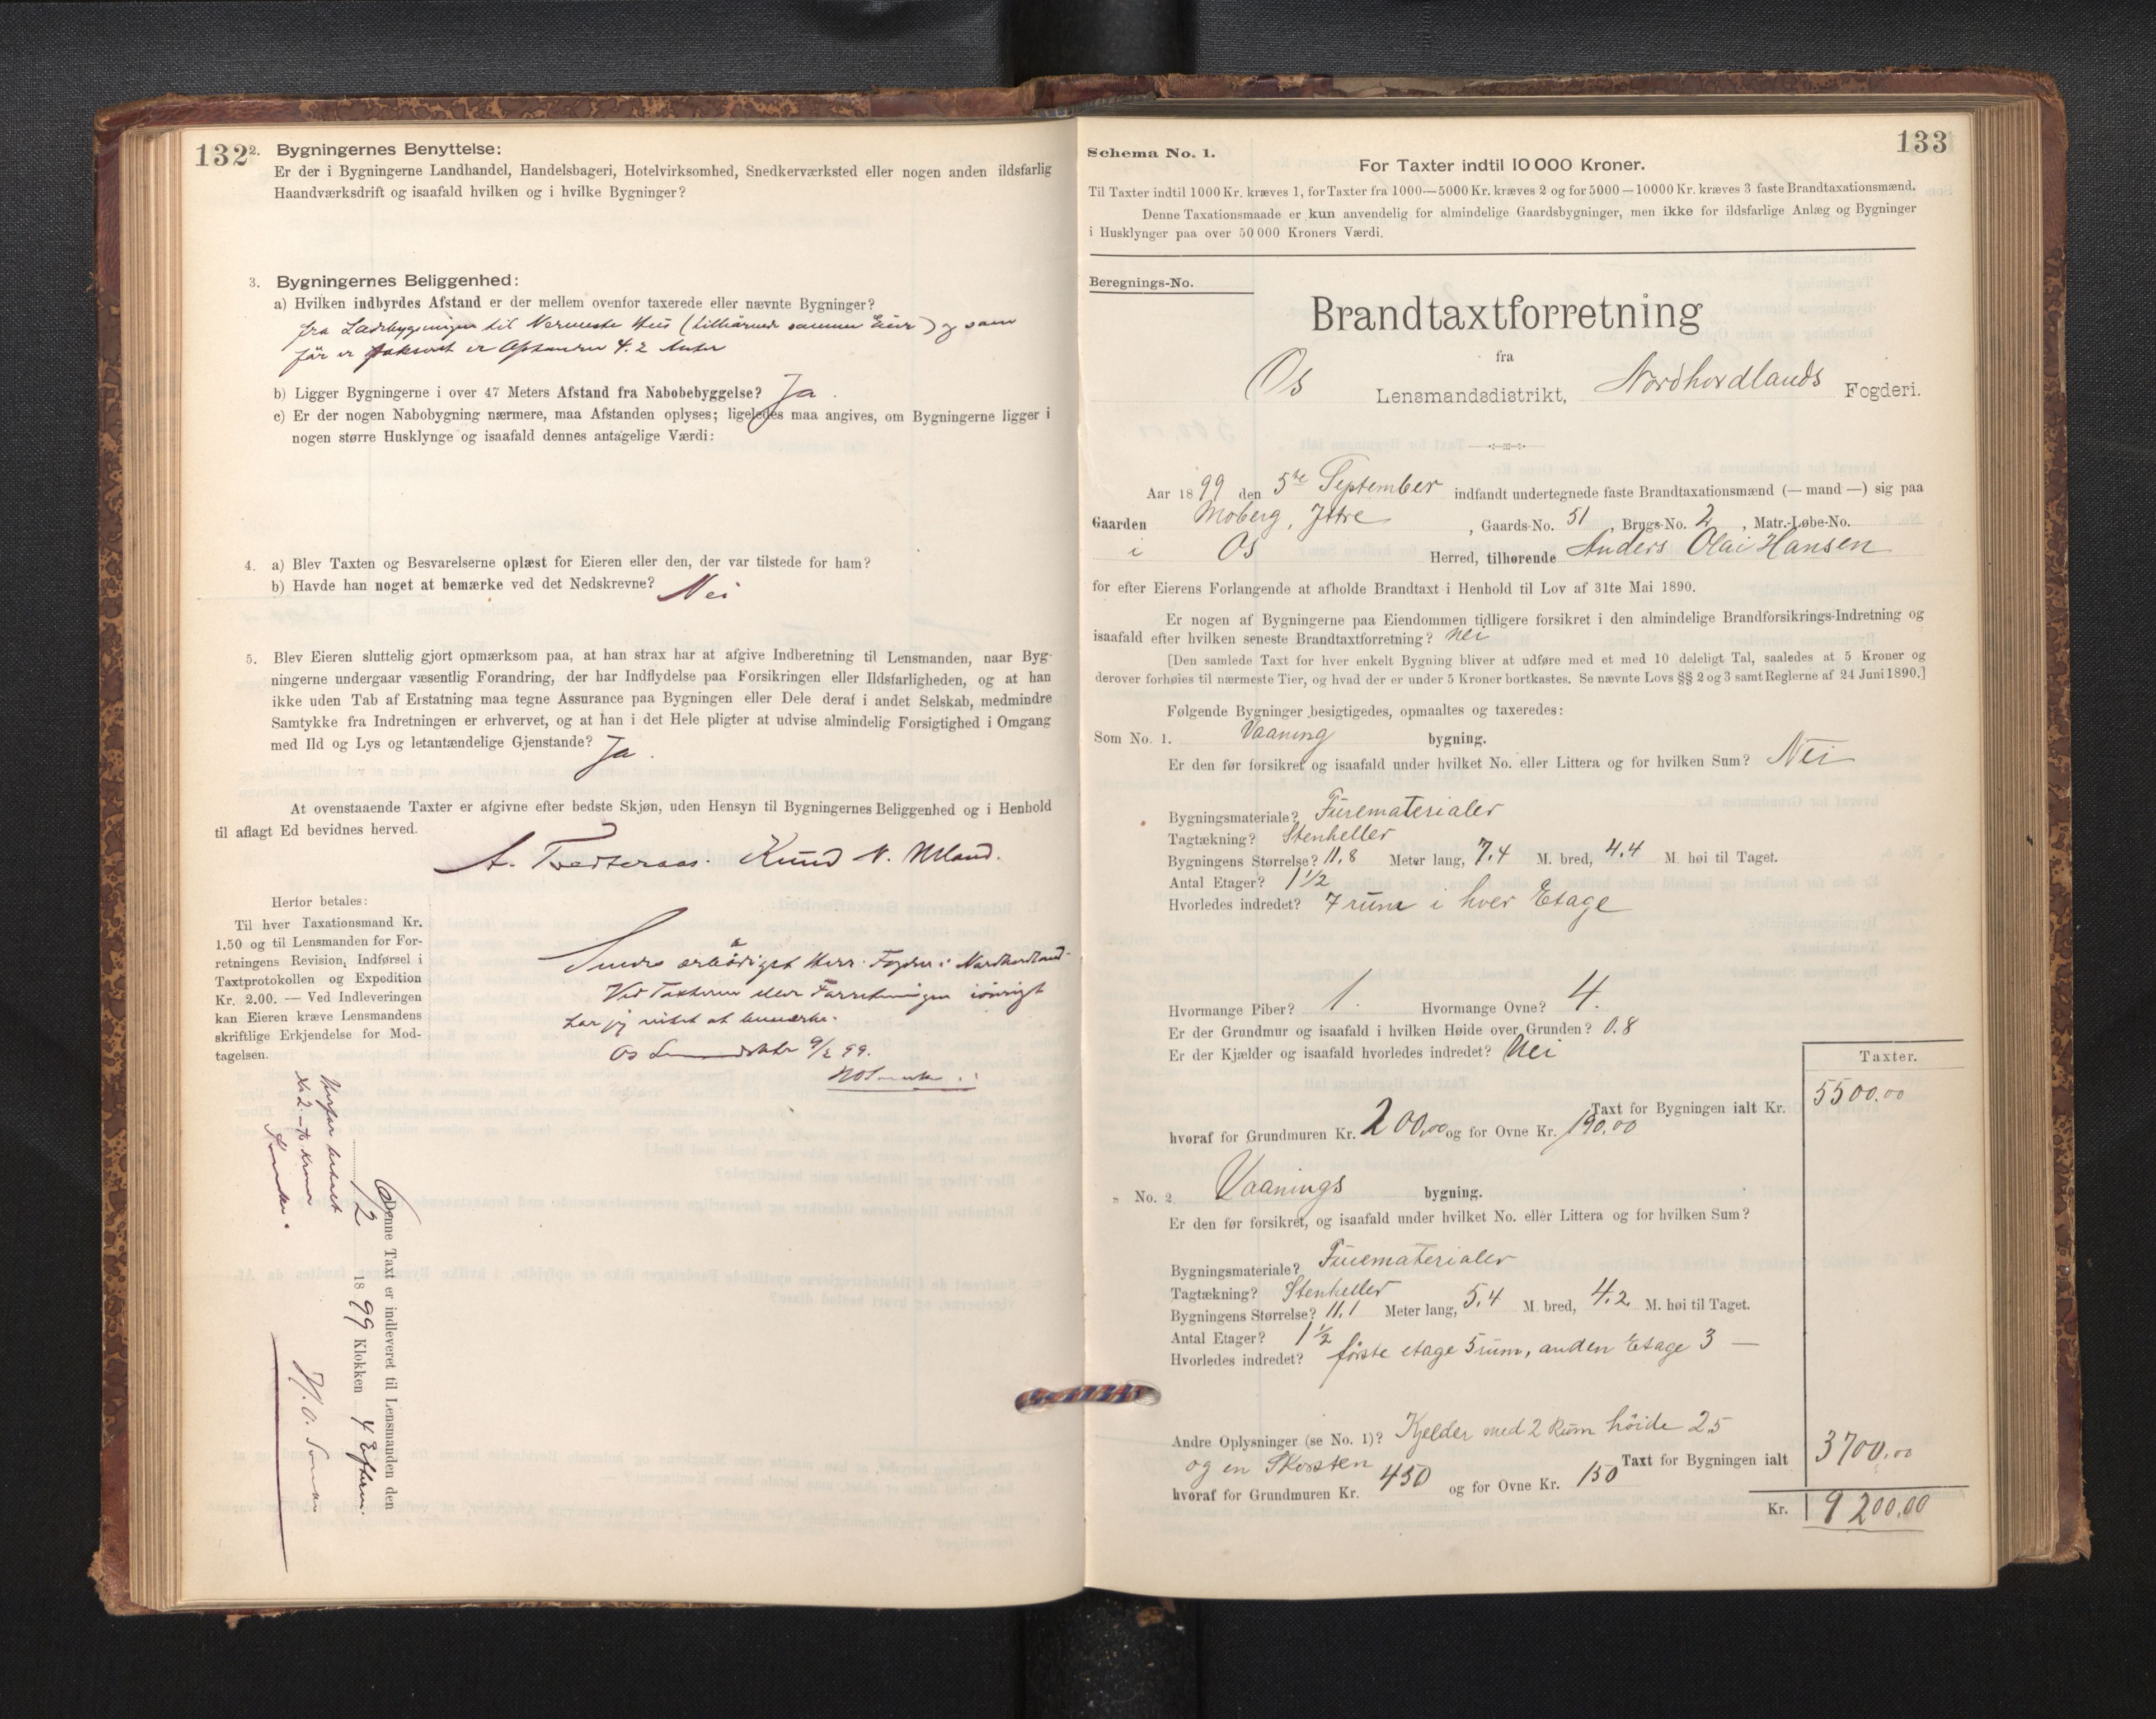 132
2. Bygningernes Benyttelse:
Er der i Bygningerne Landhandel, Handelsbageri, Hotelvirksomhed, Snedkerværksted eller nogen anden ildsfarlig
Haandværksdrift og isaafald hvilken og i hvilke Bygninger?
3. Bygningernes Beliggenhed:
a) Hvilken indbyrdes Afstand er der mellem ovenfor taxerede eller nævnte Bygninger?
fra Ladebygningen til Nærmeste Hus (tilhörende samme Eier) og som
för er er Afstanden 4.2
b) Ligger Bygningerne i over 47 Meters Afstand fra Nabobebyggelse? Ja.
c) Er der nogen Nabobygning nærmere, maa Afstanden oplyses; ligeledes maa angives, om Bygningerne ligger i
nogen større Husklynge og isaafald dennes antagelige Værdi:
4. a) Blev Taxten og Besvarelserne oplæst for Eieren eller den, der var tilstede for ham?
b) Havde han noget at bemærke ved det Nedskrevne? Nei
5. Blev Eieren sluttelig gjort opmærksom paa, at han strax har at afgive Indberetning til Lensmanden, naar Byg-
ningerne undergaar væsentlig Forandring, der har Indflydelse paa Forsikringen eller Ildsfarligheden, og at han
ikke uden Tab af Erstatning maa tegne Assurance paa Bygningen eller Dele deraf i andet Selskab, medmindre
Samtykke fra Indretningen er erhvervet, og at han i det Hele pligter at udvise almindelig Forsigtighed i Omgang
med Ild og Lys og letantændelige Gjenstande? Ja.
At ovenstaaende Taxter er afgivne efter bedste Skjøn, uden Hensyn til Bygningernes Beliggenhed og i Henhold
til aflagt Ed bevidnes herved.
A. Tveiteraas. Knud N. Uland.
Herfor betales:
Til hver Taxationsmand Kr.
1.50 og til Lensmanden for For-
retningens Revision, Indførsel i
Taxtprotokollen og Expedition
Kr. 2.00. — Ved Indleveringen
kan Eieren kræve Lensmandens
skriftlige Erkjendelse for Mod-
tagelsen.
Sendes ærbödigst Herr Fogden i Nordhordland.
Ved Taxterne eller Forretningen iövrigt
har jeg intet at bemærke.
Os 9/2 99.
Herfor betalt
Kr. 2 - to kroner
Denne Taxt er indleveret til Lensmanden den
6/2 1899 Klokken 4 Efterm.
133
Schema No. 1.
For Taxter indtil 10 000 Kroner.
Til Taxter indtil 1000 Kr. kræves 1, for Taxter fra 1000—5000 Kr. kræves 2 og for 5000—10000 Kr. kræves 3 faste Brandtaxationsmænd.
Denne Taxationsmaade er kun anvendelig for almindelige Gaardsbygninger, men ikke for ildsfarlige Anlæg og Bygninger
i Husklynger paa over 50 000 Kroners Værdi.
Beregnings-No.
Brandtaxtforretning
fra
Os Lensmandsdistrikt, Nordhordlands Fogderi.
Aar 1899 den 5te September indfandt undertegnede faste Brandtaxationsmænd (— mand —) sig paa
Gaarden Moberg, Ittre, Gaards-No. 51, Brugs-No. 2, Matr.-Løbe-No.
i Os Herred, tilhørende Anders Olai Hansen
for efter Eierens Forlangende at afholde Brandtaxt i Henhold til Lov af 31te Mai 1890.
Er nogen af Bygningerne paa Eiendommen tidligere forsikret i den almindelige Brandforsikrings-Indretning og
isaafald efter hvilken seneste Brandtaxtforretning? nei
[Den samlede Taxt for hver enkelt Bygning bliver at udføre med et med 10 deleligt Tal, saaledes at 5 Kroner og
derover forhøies til nærmeste Tier, og hvad der er under 5 Kroner bortkastes. Se nævnte Lovs §§ 2 og 3 samt Reglerne af 24 Juni 1890.]
Følgende Bygninger besigtigedes, opmaaltes og taxeredes:
Som No. 1. Vaaning bygning.
Er den før forsikret og isaafald under hvilket No. eller Littera og for hvilken Sum? Nei
Bygningsmateriale? Furematerialer
Tagtækning? Stenheller
Bygningens Størrelse? 11.8 Meter lang, 7.4 M. bred, 4.4 M. høi til Taget.
Antal Etager? 1 1/2
Hvorledes indredet? 7 rum i hver Etage
Hvormange Piber? 1. Hvormange Ovne? 4.
Er der Grundmur og isaafald i hvilken Høide over Grunden? 0.8
Er der Kjælder og isaafald hvorledes indredet? Nei
Taxter.
Taxt for Bygningen ialt Kr. 5500.00
hvoraf for Grundmuren Kr. 200.00 og for Ovne Kr. 190.00
„ No. 2 Vaanings bygning.
Er den før forsikret, og isaafald under hvilket No. eller Littera og for hvilken Sum?
Bygningsmateriale? Furematerialer
Tagtækning? Stenheller
Bygningens Størrelse? 11.1 Meter lang, 5.4 M. bred, 4.2 M. høi til Taget.
Antal Etager? 1 1/2
Hvorledes indredet? förste etage 5 rum, anden Etage 3 —
Andre Oplysninger (se No. 1)? Kjelder med 2 Rum höide 2.5
og en Skorsten Taxt for Bygningen ialt 3700.00
hvoraf for Grundmuren Kr. 450 og for Ovne Kr. 150
Kr. 9200.00